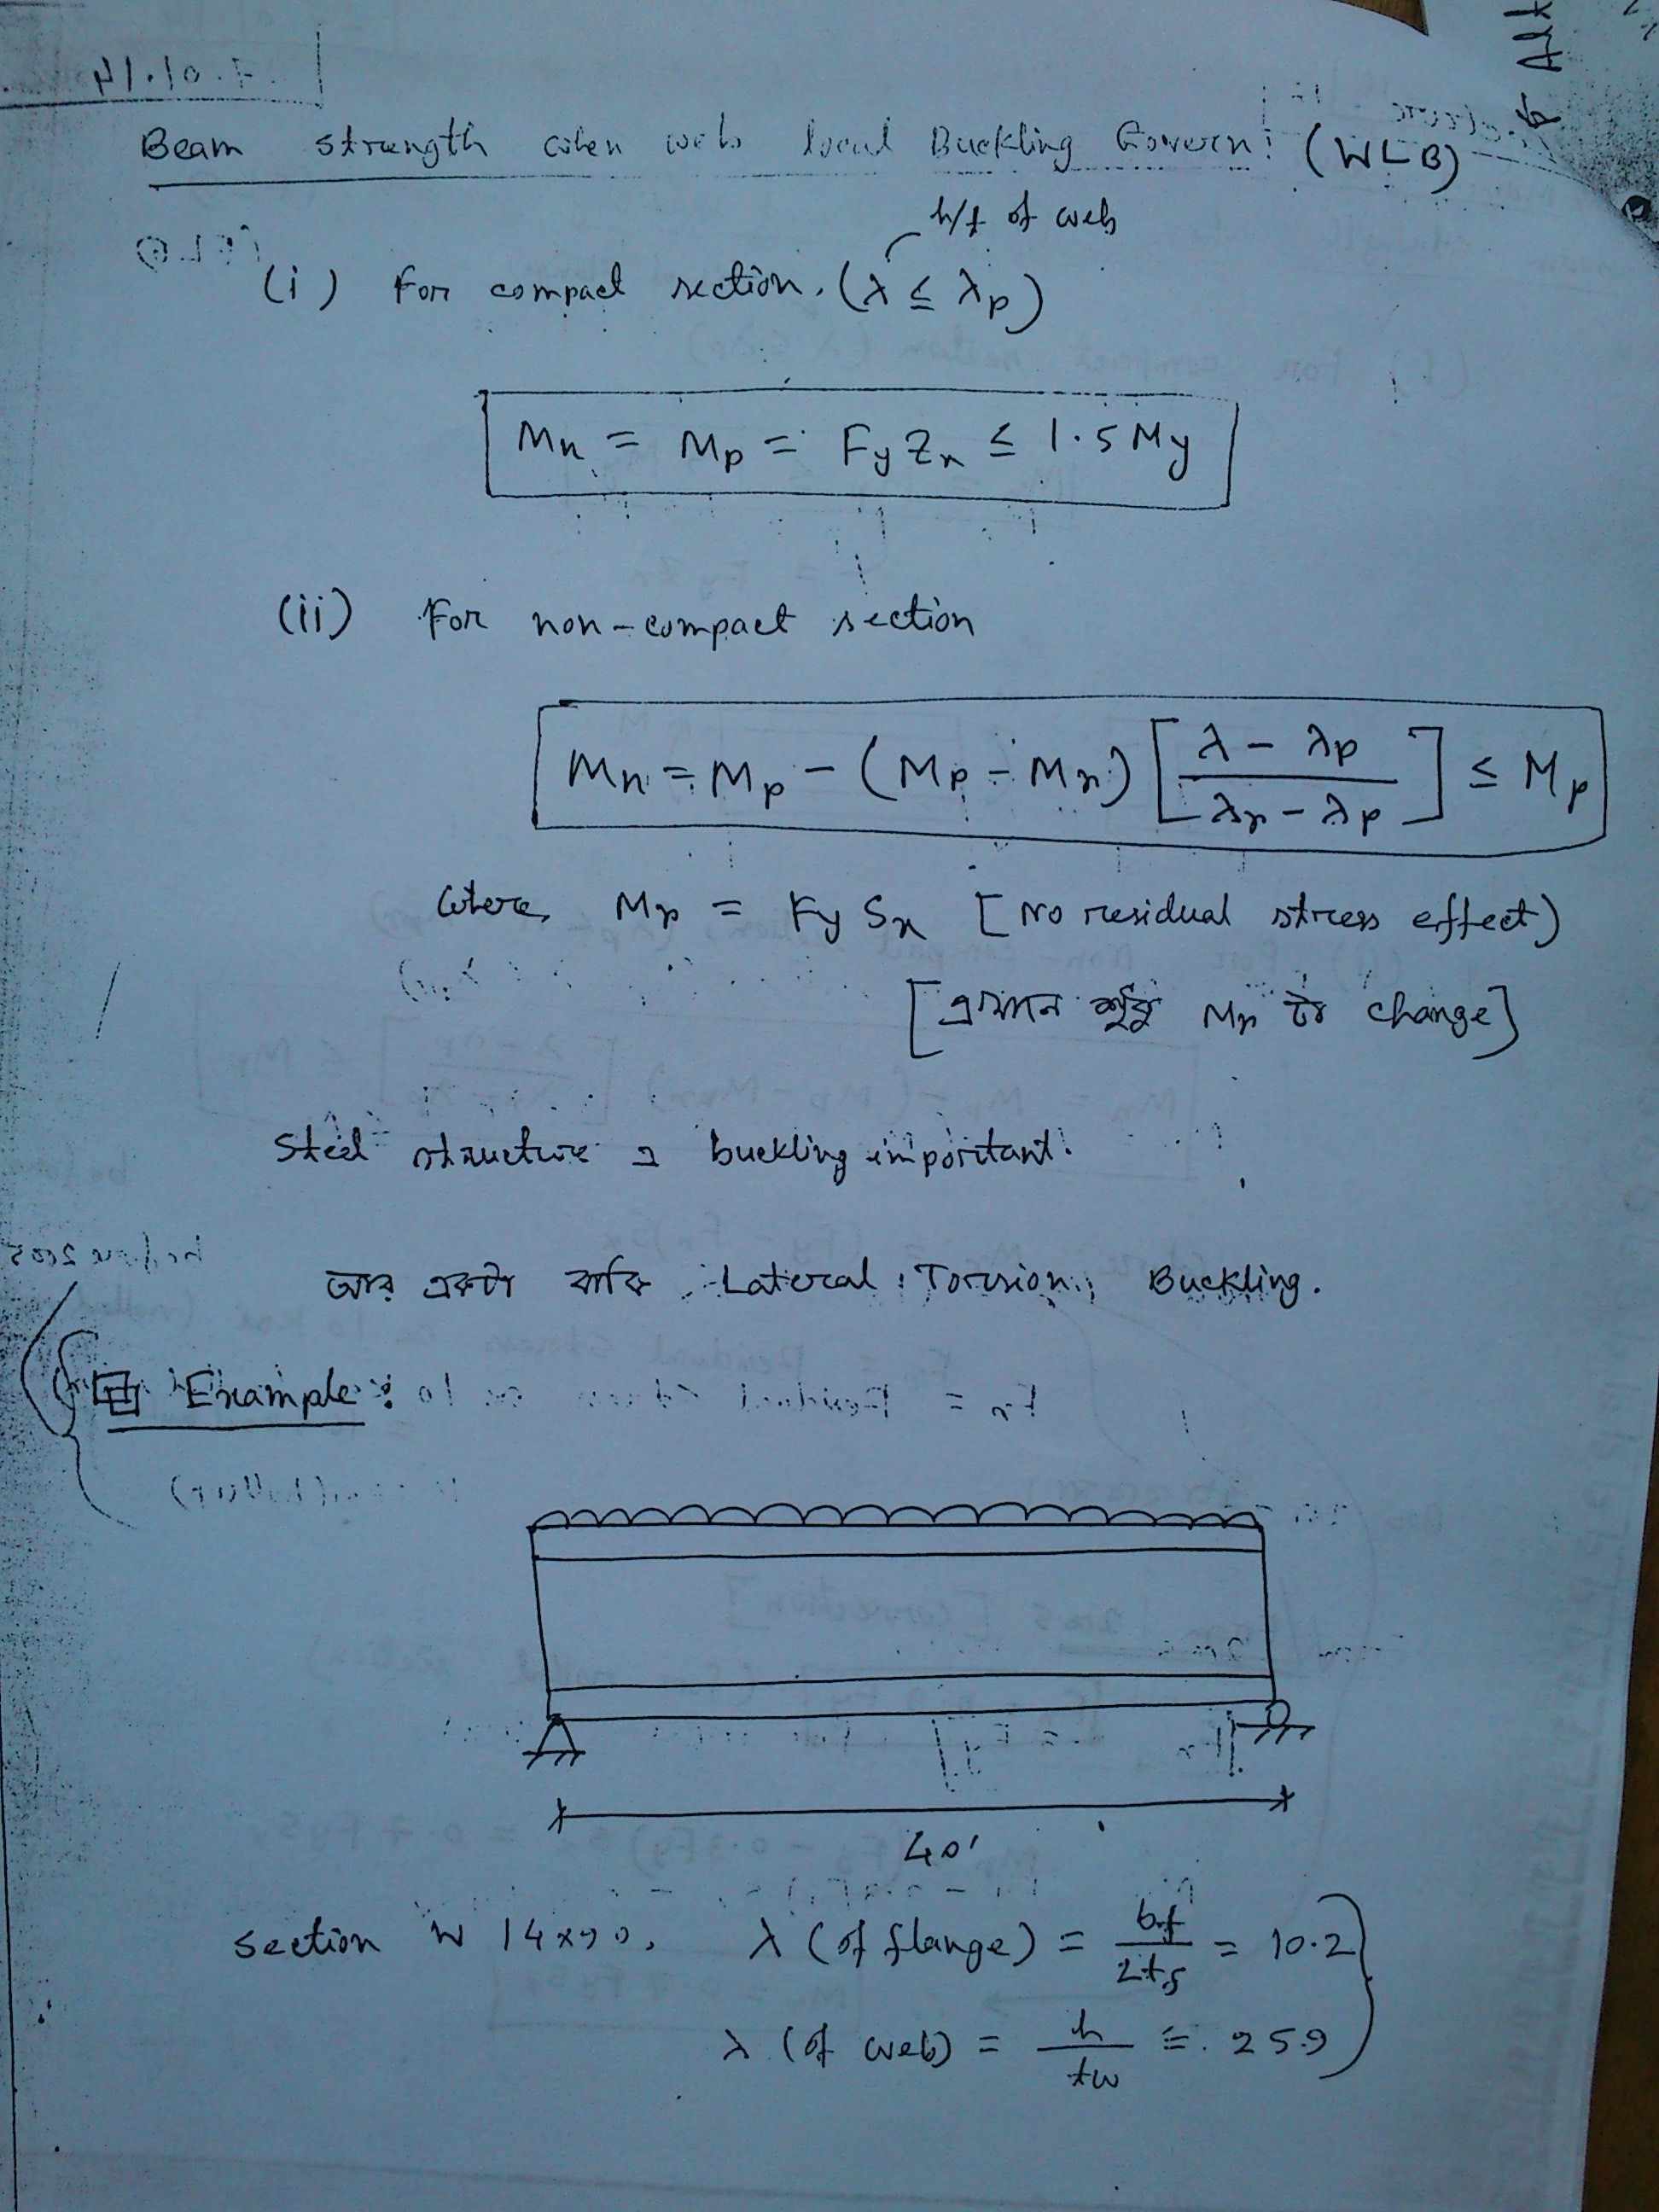 Beam strength when web local Buckling Govern: (WLB)
h/t of web
(i) For compact section. (λ ≤ λp)
Mn = Mp = Fy Zx ≤ 1.5 My
(ii) For non-compact section
Mn = Mp - (Mp - Mr) [(λ - λp)/(λr - λp)] ≤ Mp
where, Mr = Fy Sx [No residual stress effect)
[এখানে শুধু Mr টা change]
Steel structure এ buckling important.
আর একটা বাকি Lateral Torsion Buckling.
Example:
40'
section W 14x90, λ (of flange) = bf/2tf = 10.2
λ (of web) = h/tw = 25.9